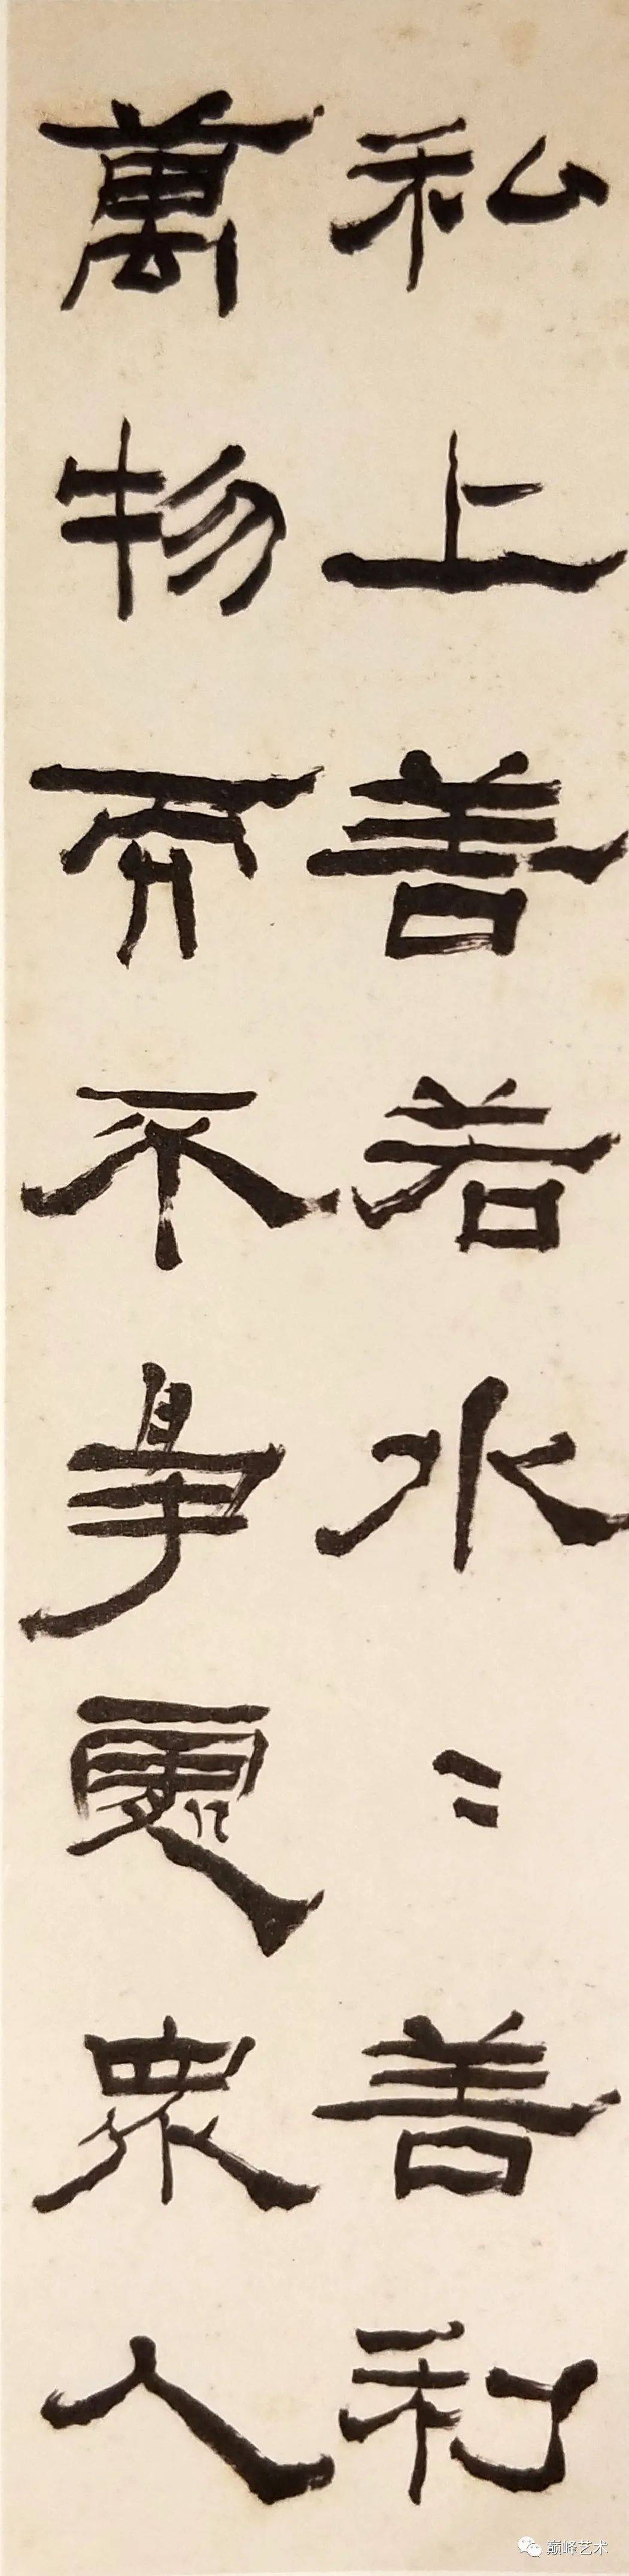 私上善若水〻善利
萬物而不爭處衆人
巅峰艺术